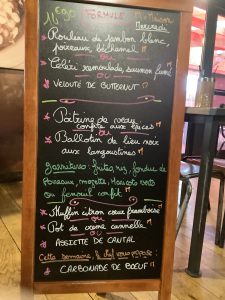 FORMULE
Maison
Mercredi
Rouleau de jambon blanc,
poireaux, béchamel
ou
Céleri remoulade, saumon fumé
ou
VELOUTÉ DE BUTTERNUT
Poitrine de veau
confite aux épices
ou
Ballotin de lieu noir
aux langoustines
Garnitures: frites, riz, fondue de
Poireaux, haricots verts
ou fenouil confit
Muffin citron cœur framboise
ou
Pot de crème cannelle
ou
ASSIETTE DE CANTAL
Cette semaine, le chef vous propose:
CARBONADE DE BOEUF